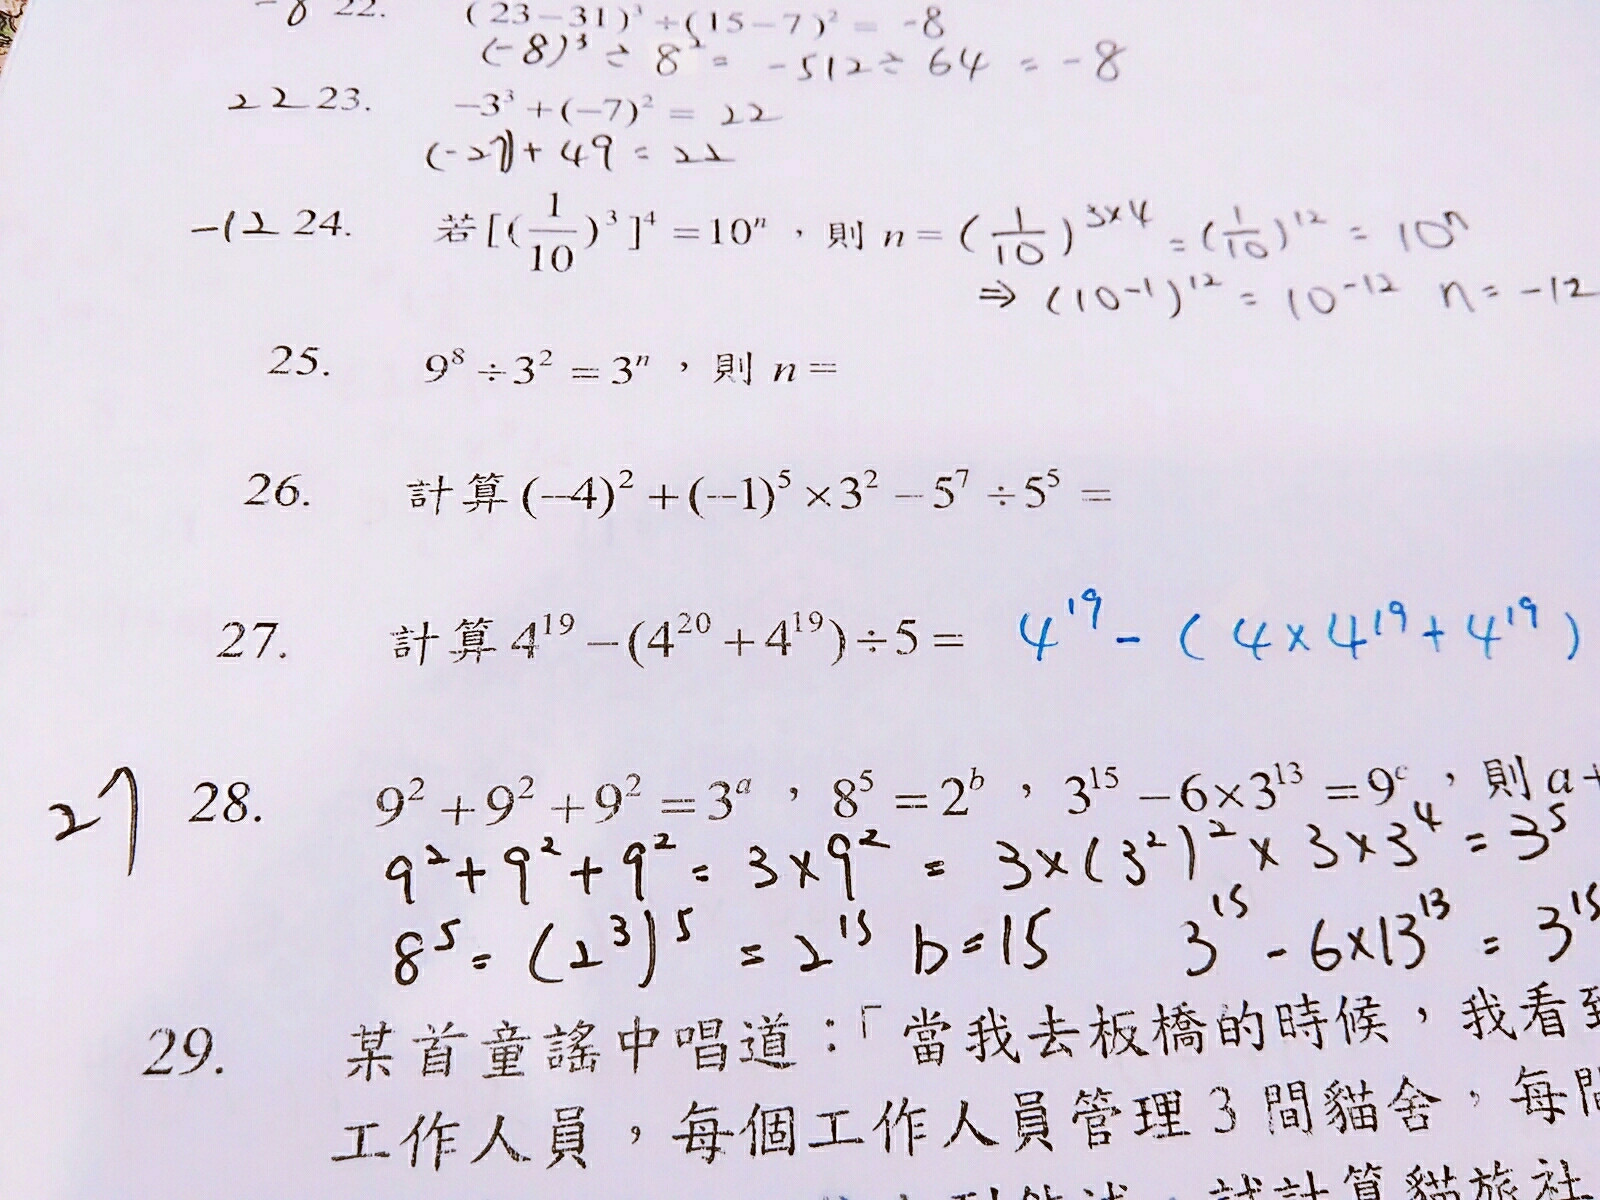 -8 22. (23-31)³÷(15-7)² = -8
(-8)³ ÷ 8² = -512 ÷ 64 = -8
22 23. -3³+(-7)² = 22
(-27)+49 = 22
-12 24. 若[(1/10)³]⁴=10ⁿ，則 n= (1/10)³ˣ⁴ = (1/10)¹² = 10ⁿ
⇒ (10⁻¹)¹² = 10⁻¹² n = -12
25. 9⁸÷3²=3ⁿ，則 n=
26. 計算(-4)²+(-1)⁵×3²-5⁷÷5⁵=
27. 計算4¹⁹-(4²⁰+4¹⁹)÷5= 4¹⁹-(4×4¹⁹+4¹⁹)
27 28. 9²+9²+9²=3ᵃ，8⁵=2ᵇ，3¹⁵-6×3¹³=9ᶜ，則a+
9²+9²+9² = 3×9² = 3×(3²)²×3×3⁴ = 3⁵
8⁵ = (2³)⁵ = 2¹⁵ b=15 3¹⁵-6×13¹³ = 3¹⁵
29. 某首童謠中唱道：「當我去板橋的時候，我看到
工作人員，每個工作人員管理3間貓舍，每間
試計算貓旅社